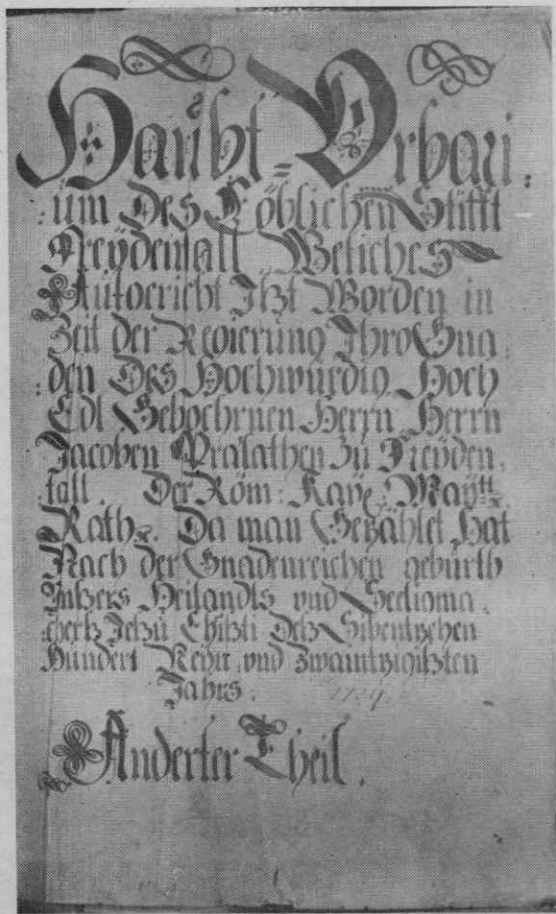 Haubt = Urbari :
: um Des Löblichen Stifft
Freÿdentall Weliches
Aufgericht Jtzt Worden in
Zeit der Regierung Jhro Gna :
: den Des Hochwürdig. Hoch
Edl Gebohrnen Herrn Herrn
Jacoben Prälathen Zu Freÿden :
: tall. Der Röm : Kaÿ : Maÿtt
Rath. Da man Gezählet Hat
Nach der Gnadenreichen geburth
Unsers Heilandts und Seeligma :
: Jesu Christi Deß Sibentzehen
Hundert Neün und Zwaintzigisten
Jahrs . 1729
Anderter Theil .